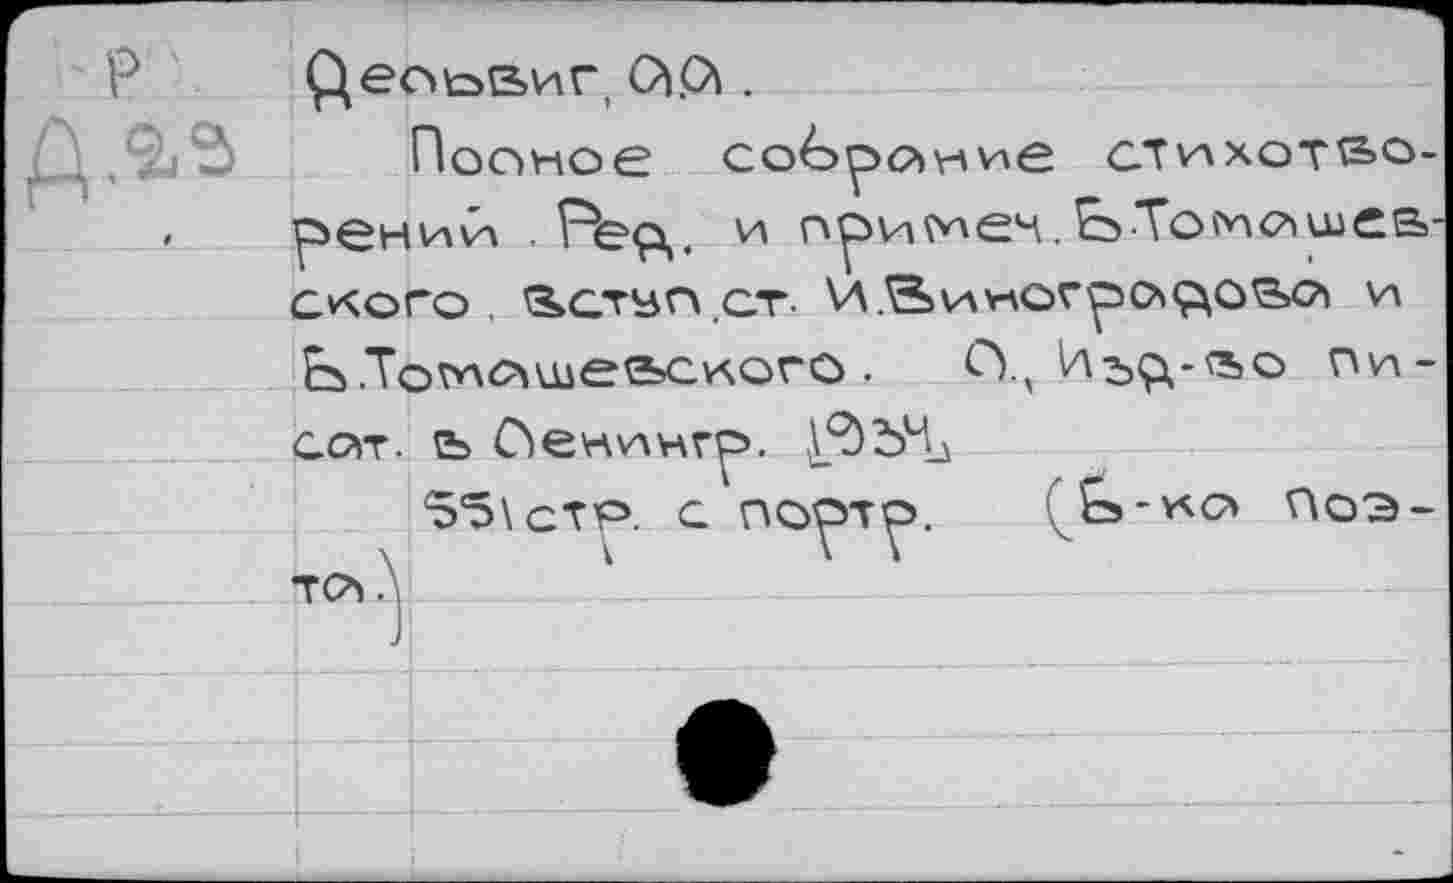 Р Дельвиг, А.А.
Д.23 Полное собрание стихотво-
рений. Ред. и примеч. Б.Томашев-
ского, вступ.ст. И.Виноградова и
Б.Томашевского. Л., Изд-во пи-
сат. в Ленингр. 1934
551стр. с портр. (Б-ка поэ-
та.)